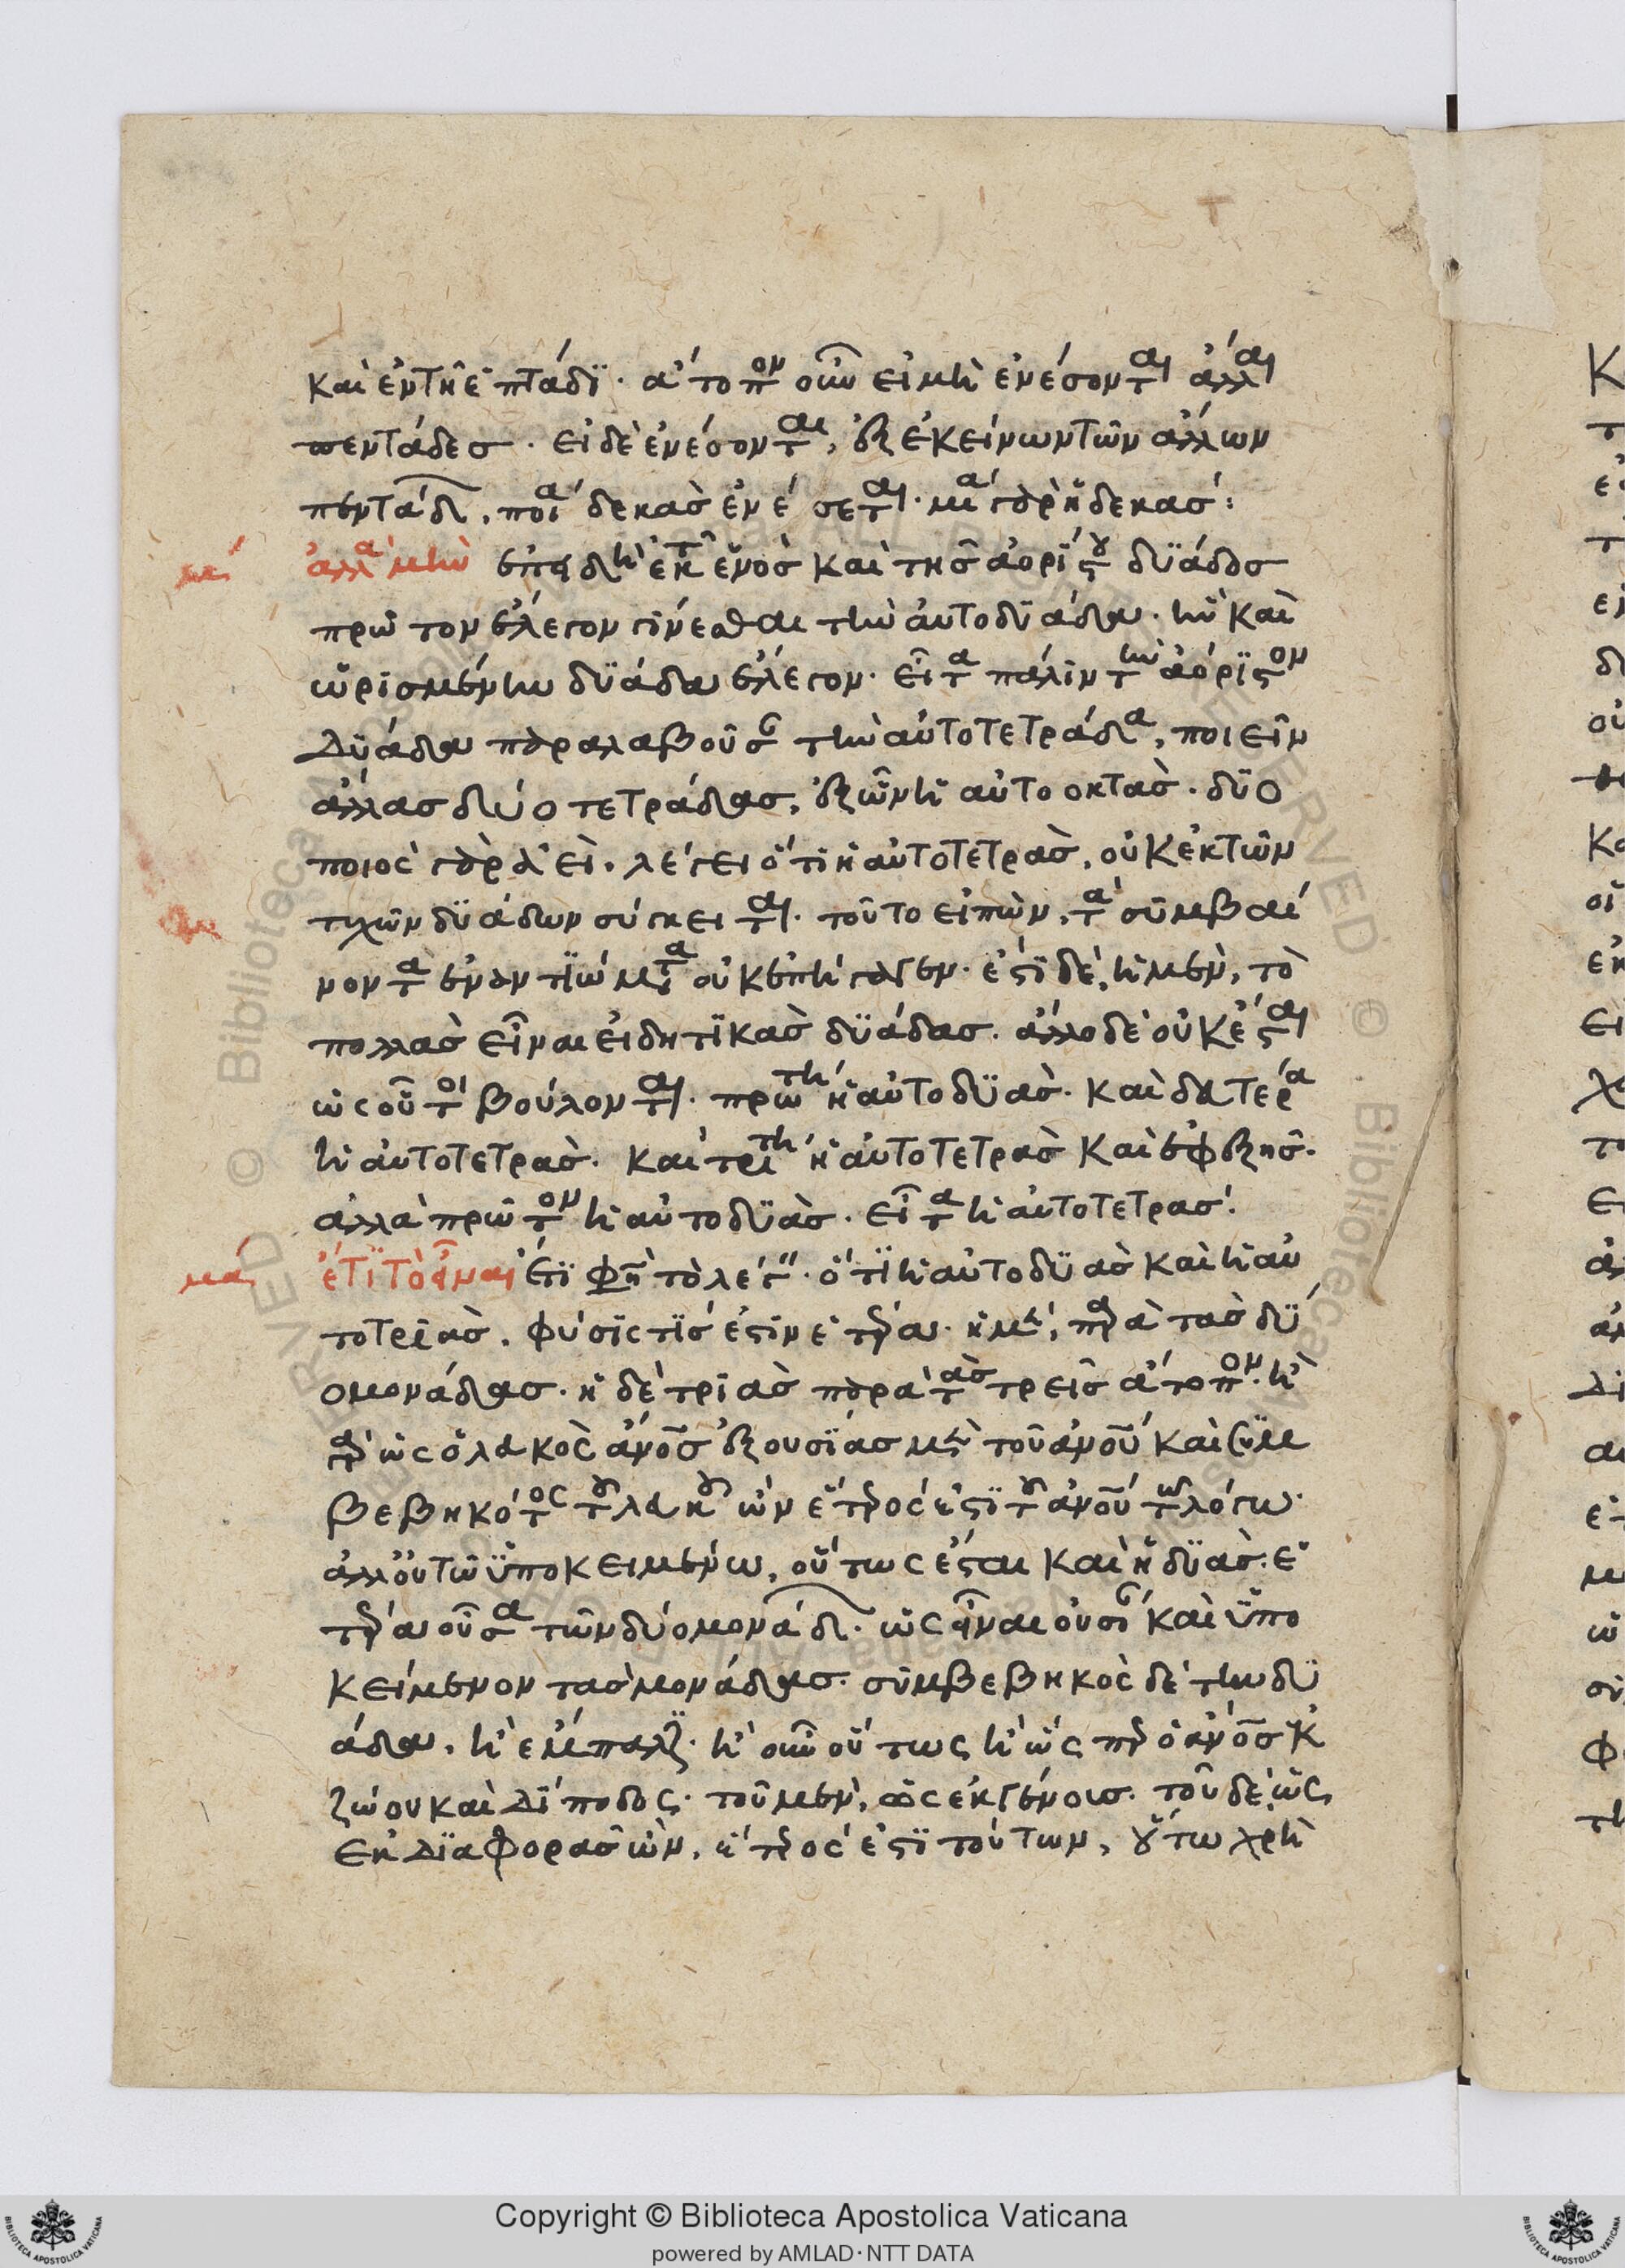 καὶ ἐν τῆ ἑπτάδϊ · ἄτοπον οὖν εἰ μὴ ἐνέσονται ἄλλαι
πεντάδες · εἰ δὲ ἐνέσονται, ἐξ ἐκείνων τῶν ἄλλων
πεντάδων, ποία δεκὰς ἐνέσεται · μία γὰρ ἡ δεκάς :
μ´ ἀλλὰ μὴν ἐπειδὴ ἐκ τοῦ ἑνὸς καὶ τῆς ἀορίστου δϋάδος
πρῶτον ἔλεγον γίνεσθαι τὴν αὐτοδϋάδα · ἣν καὶ
ὡρισμένην δϋάδα ἔλεγον · εἶτα πάλιν τὴν ἀόριστον
Δϋάδα παραλαβοῦσαν τὴν αὐτοτετράδα, ποιεῖν
ἄλλας δύο τετράδας, ἐξ ὧν ἡ αὐτοοκτάς · δϋο
ποιὸς γὰρ ἀεὶ · λέγει ὅτι ἡ αὐτοτετρὰς, οὐκ ἐκ τῶν
τυχῶν δϋάδων σύγκειται · τοῦτο εἰπὼν, τὰ συμβαί
νοντα ἐναντιώματα οὐκ ἐπήγαγεν · ἔστι δὲ, ἡ μὲν, τὸ
πολλὰς εἶναι εἰδητικὰς δϋάδας · ἄλλο δὲ οὐκ ἔσται
ὡς οὗτοι βούλονται · πρώτη ἡ αὐτοδϋάς · καὶ δευτέρα
ἡ αὐτοτετράς · καὶ τρίτη ἡ αὐτοτετρὰς καὶ ἐφεξῆς ·
ἀλλὰ πρῶτον ἡ αὐτοδϋάς · εἶτα ἡ αὐτοτετράς :
μα´ ἔτϊ τὸ εἶναι ἔτϊ φησὶ τὸ λέγειν · ὅτϊ ἡ αὐτοδϋὰς καὶ ἡ αὐ
τοτριὰς, φύσις τίς ἐστιν ἑτέρα · ἡ μὲν, παρὰ τὰς δύ
ο μονάδας · ἡ δὲ τριὰς παρὰ τὰς τρεῖς ἄτοπον · ἢ
γὰρ ὡς ὁ λευκὸς ἄνθρωπος ἐξ οὐσίας μὲν τοῦ ἀνθρώπου καὶ συμ
βεβηκότος τοῦ λευκοῦ ὢν ἕτερός ἐστι τοῦ ἀνθρώπου τῷ λόγω ·
ἀλλ' οὐ τῶ ὑποκειμένω, οὕτως ἔσται καὶ ἡ δϋάς · ἑ
τέρα οὖσα τῶν δύο μονάδων · ὡς εἶναι οὐσίαν καὶ ὑπο
κείμενον τὰς μονάδας · συμβεβηκὸς δὲ τὴν δϋ
άδα, ἢ ἔμπαλιν · ἢ οὖν οὕτως ἢ ὡς παρὰ ὁ ἄνθρωπος ἐκ
ζώου καὶ Δίποδος · τοῦ μὲν, ὡς ἐκ γένους · τοῦ δὲ, ὡς
ἐκ Διαφορᾶς ὢν, ἕτερός ἐστι τούτων, οὕτω χρὴ